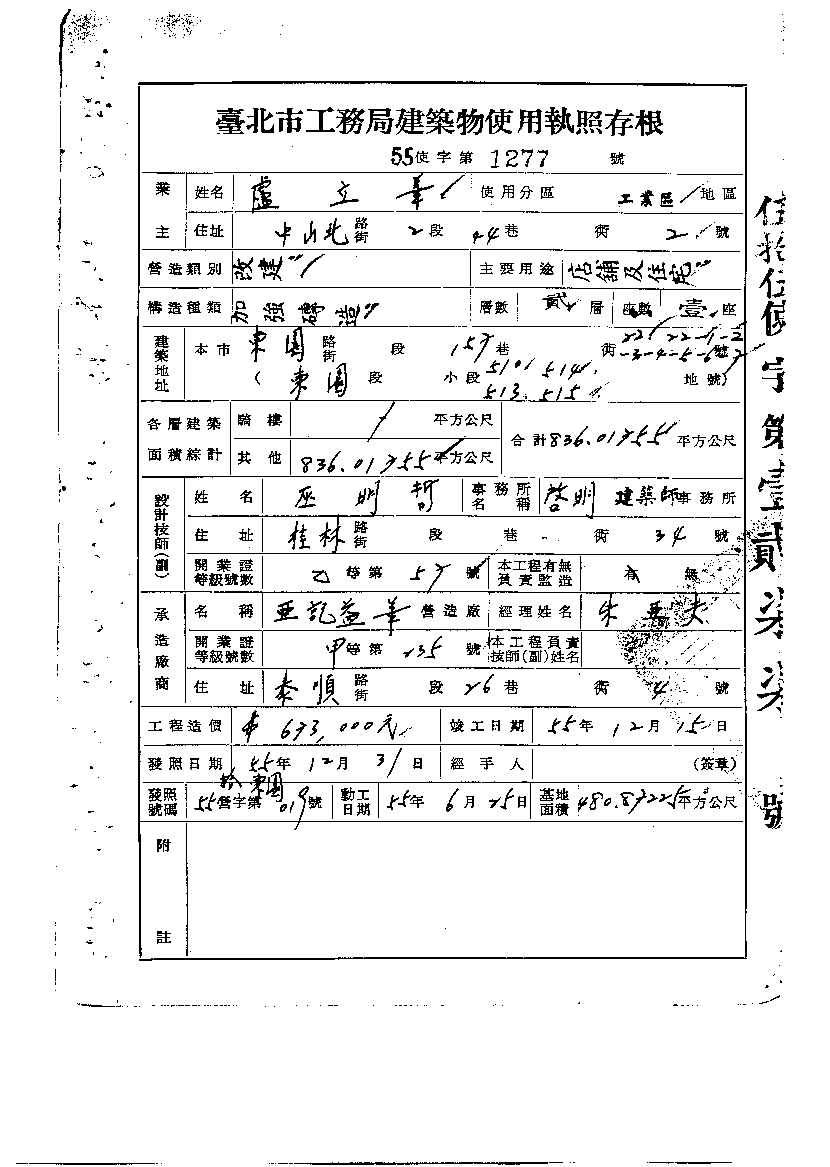 臺北市工務局建築物使用執照存根
55使字第1277號
業主 姓名 盧立華 使用分區 工業區 地區
住址 中山北路街 2段 44巷 街 2號
營造類別 改建 主要用途 店舖及住宅
構造種類 加強磚造 層數 貳層 座數 壹座
建築地址 本市 東園路街 段 157巷 街 號
(東園段 小段 510 514 513.515 地號)
各層建築面積綜計 騎樓 平方公尺 合計 836.01755平方公尺
其他 836.01755平方公尺
設計技師(副) 姓名 巫明哲 事務所名稱 啓明建築師事務所
住址 桂林路街 段 巷 街 34號
開業證等級號數 乙等第57號 本工程有無負責監造 有 無
承造廠商 名稱 亞記益華營造廠 經理姓名 朱
開業證等級號數 甲等第235號 本工程負責技師(副)姓名
住址 泰順路街 段 26巷 街 4號
工程造價 673,000元 竣工日期 55年12月15日
發照日期 55年12月31日 經手人 (簽章)
發照號碼 55營字第019號 東園 動工日期 55年6月25日 基地面積 480.87225平方公尺
附註
伍拾伍使字第壹貳柒柒號